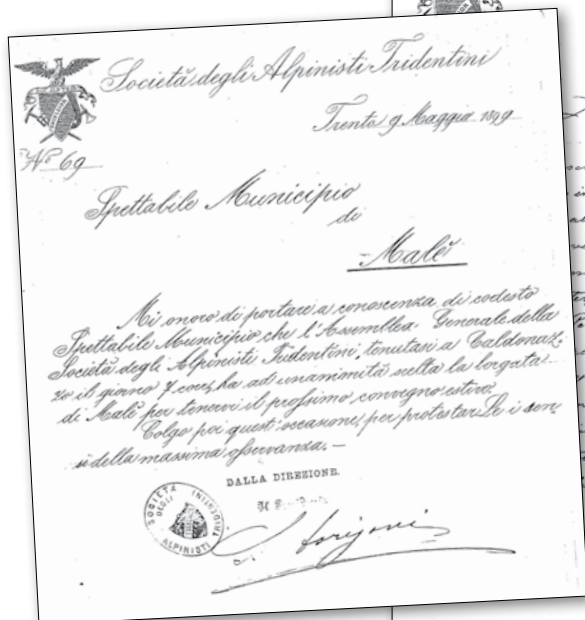 Società degli Alpinisti Tridentini
Trento 9 Maggio 1899
Nº 69
Spettabile Municipio
di
Malè
Mi onoro di portare a conoscenza di codesto
Spettabile Municipio che l'Assemblea Generale della
Società degli Alpinisti Tridentini, tenutasi a Caldonaz-
zo il giorno 7 corr, ha ad unanimità scelta la borgata
di Malè per tenervi il prossimo convegno estivo.
Colgo poi quest'occasione, per protestarLe i sen-
si della massima osservanza. —
DALLA DIREZIONE.
SOCIETÀ DEGLI ALPINISTI TRIDENTINI